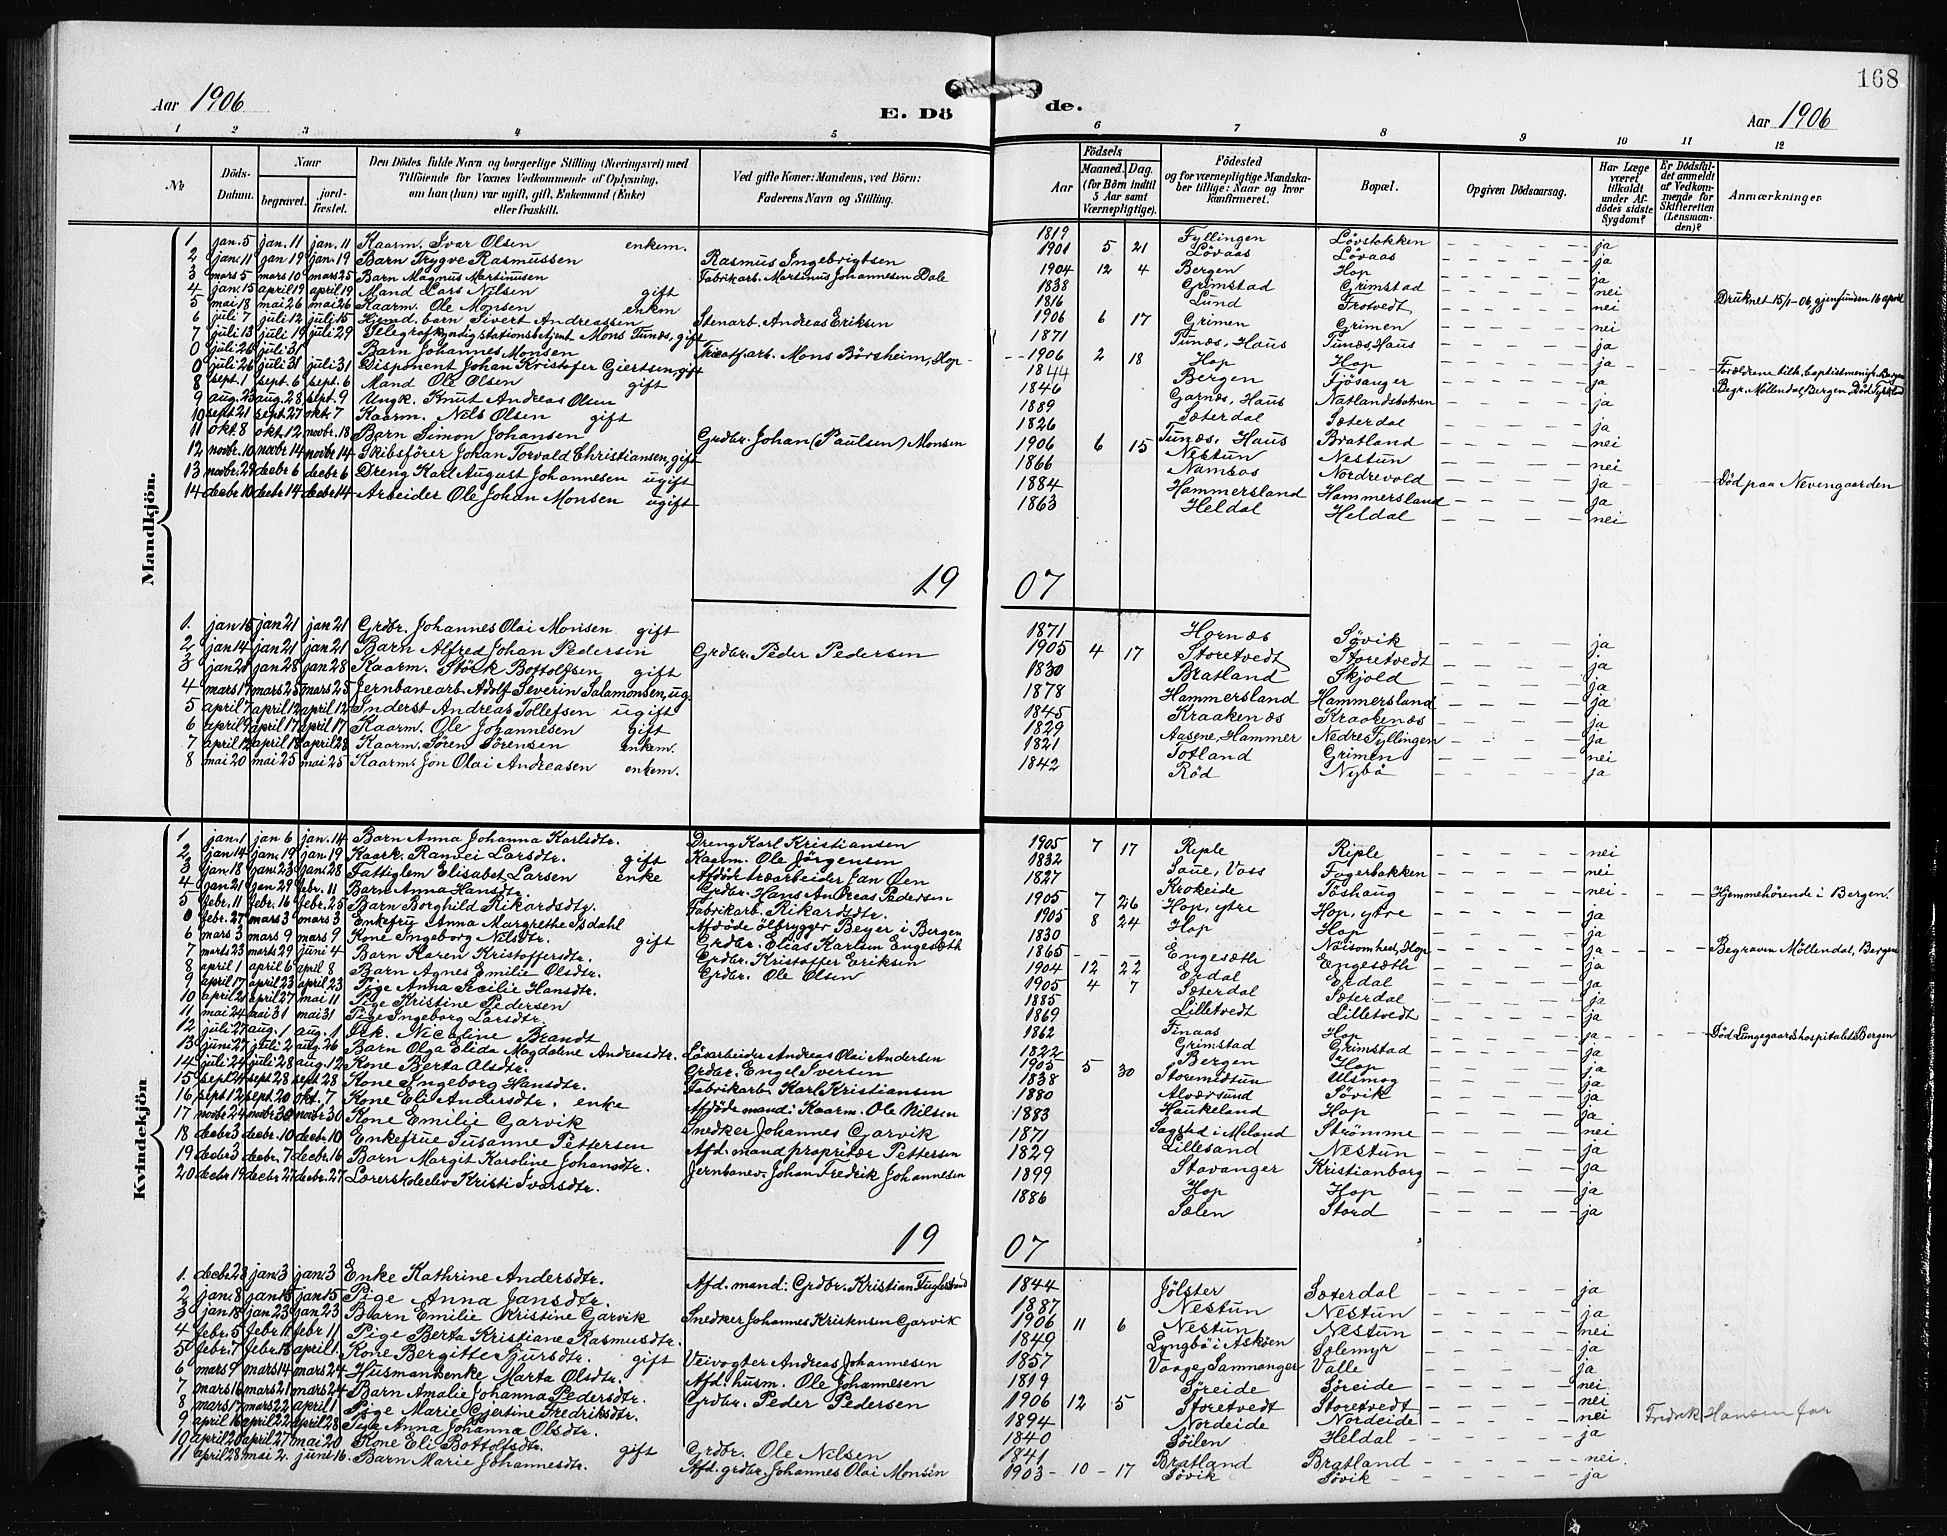 168
Aar 1906 E. Dö de. Aar 1906
1 2 3 4 5 6 7 8 9 10 11 12
№
Döds-Datum.
Naar
begravet.
jordfæstet.
Den Dödes fulde Navn og borgerlige Stilling (Næringsvei) med
Tilföiende for Voxnes Vedkommende af Oplysning,
om han (hun) var ugift, gift, Enkemand (Enke)
eller fraskilt.
Ved gifte Koner: Mandens, ved Börn:
Faderens Navn og Stilling.
Aar
Födsels
Maaned. Dag.
(for Börn indtil 5 Aar samt Værnepligtige).
Födested
og for værnepligtige Mandskaber tillige: Naar og hvor konfirmeret.
Bopæl.
Opgiven Dödsaarsag.
Har Læge været tilkaldt under Afdödes sidste Sygdom?
Er Dödsfaldet anmeldt af Vedkommende for Skifteretten (Lensmanden)?
Anmærkninger
Mandkjön.
1 jan. 5 jan. 11 jan. 11 Kaarm. Ivar Olsen enkem. 1819 Fyllingen Lövstakken ja
2 jan. 11 jan. 19 jan. 19 Barn Trygve Rasmussen Rasmus Ingebrigtsen 1901 5 21 Lövaas Lövaas ja
3 mars 5 mars 10 mars 25 Barn Magnus Martinusen Fabrikarb. Martinus Johannesen Dale 1904 12 4 Bergen Hop ja
4 jan. 15 april 19 april 19 Mand Lars Nilsen gift 1838 Grimstad Grimstad nei Druknet 15/1-06, gjenfunden 16 april
5 mai 18 mai 26 mai 26 Kaarm. Ole Monsen enkem 1816 Lund Trotvedt nei
6 juli 7 juli 12 juli 15 Hjmd. barn Sivert Andreassen Stenarb. Andreas Eriksen 1906 6 17 Grimen Grimen nei
7 juli 13 juli 19 juli 29 Telegrafkyndig stationsbetjent Mons Tunæs, gift 1871 Tunæs, Haus Tunæs, Haus ja
0 juli 26 juli 31 Barn Johannes Monsen Tricotf.arb. Mons Börsheim, Hop 1906 2 18 Hop Hop ja Forældrene tilh. baptistmenigh. Bergen
0 juli 26 juli 31 juli 31 Disponent Johan Kristofer Giertsen, gift 1844 Bergen Fjösanger ja Begr. Möllendal, Bergen. Död Tyskland
8 sept. 1 sept. 6 sept. 6 Mand Ole Olsen gift 1846 Garnæs, Haus Natlandsbotnen ja
9 aug. 23 aug. 28 sept. 9 Ungk. Knut Andreas Olsen 1889 Sæterdal Sæterdal ja
10 sept 21 sept. 27 okt. 7 Kaarm. Nils Olsen gift 1826 Tunæs, Haus Bratland nei
11 okt. 8 okt. 12 novbr. 18 Barn Simon Johansen Grdbr. Johan (Paulsen) Monsen 1906 6 15 Nestun Nestun nei
12 novbr. 10 novbr 14 novbr 14 Skibsförer Johan Torvald Christiansen, gift 1866 Namsos Nordrevold ja Död paa Nevengaarden
13 novbr. 29 decbr 6 decbr 6 Dreng Karl August Johannesen ugift 1884 Hammersland Hammersland ja
14 decbr 10 decbr 14 decbr 14 Arbeider Ole Johan Monsen ugift 1863 Heldal Heldal nei
19 07
1. jan 16 jan 21 jan 21 Grdbr. Johannes Olai Monsen gift 1871 Hornæs Sövik ja
2 jan 14 jan 21 jan 21 Barn Alfred Johan Pedersen Grdbr. Peder Pedersen 1905 4 17 Storetvedt Storetvedt ja
3 jan 21 jan 28 jan 28 Kaarm. Störk Bottolfsen gift 1830 Bratland Skjold ja
4 mars 17 mars 25 mars 25 Jernbanearb. Adolf Severin Salamonsen, ug. 1878 Hammersland Hammersland ja
5 april 7 april 12 april 12 Inderst Andreas Tollefsen ugift 1845 Kraakenæs Kraakenæs ja
6 april 9 april 17 april 17 Kaarm. Ole Johannesen gift 1829 Aasene, Hammer Nedre Fyllingen ja
7 april 12 april 18 april 28 Kaarm. Sören Sörensen enkem. 1821 Totland Grimen nei
8 mai 20 mai 25 mai 25 Kaarm. Jon Olai Andreasen enkem. 1842 Röd Nybö ja
Kvindekjön
1 jan. 1 jan 6 jan. 14 Barn Anna Johanna Karlsdtr. Dreng Karl Kristiansen 1905 7 17 Riple Riple nei
2 jan 14 jan. 19 jan 19 Kaark. Ranvei Larsdtr. gift Kaarm. Ole Jörgensen 1832 Saue, Voss Fagerbakken nei
3 jan 18 jan. 23 jan 28 Fattiglem Elisabet Larsen enke Afdöde træarbeider Jan Öen 1827 Krokeide Töshaug nei Hjemmehörende i Bergen.
4 jan 21 jan 29 febr. 11 Barn Anna Hansdtr. Grdbr. Hans Andreas Pedersen 1905 7 26 Hop, ytre Hop, ytre ja
5 febr. 11 febr. 16 febr. 25 Barn Borghild Rikardsdtr. Fabrikarb. Rikardsdtr. 1905 8 24 Hop Hop ja
0 febr. 27 mars 3 mars 3 Enkefru Anna Margrethe Isdahl Afdöde ölbrygger Beyer i Bergen 1830 Nøisomhed, Hop ja Begraven Möllendal, Bergen
6 mars 3 mars 9 mars 9 Kone Ingeborg Nilsdtr. gift Grdbr. Elias Karlsen Engesæth 1865 Engesæth Engesæth ja
7 marts 23 marts 29 juni 4 Barn Karen Kristoffersdtr. Grdbr. Kristoffer Eriksen 1904 12 22 Erdal Erdal ja
8 april 1 april 6 april 8 Barn Agnes Emilie Olsdtr. Grdbr. Ole Olsen 1905 4 7 Sæterdal Sæterdal ja
9 april 17 april 23 april 23 Pige Anna Secilie Hansdtr. 1885 Lilletvedt Lilletvedt ja
10 april 21 april 27 mai 11 Pige Kristine Pedersen 1869 Finaas Hop ja Död Lungegaardshospitalet, Bergen
11 mai 24 mai 31 mai 31 Pige Ingeborg Larsdtr. 1862 Grimstad Grimstad ja
12 juli 27 aug. 1 aug. 1 Frk. Nicoline Brandt 1822 Bergen Hop ja
13 juni 27 juli 2 aug. 26 Barn Olga Elida Magdaline Andreasdtr. Lösarbeider Andreas Olai Andersen 1905 5 30 Storemidtun Ulsmog ja
14 juli 24 juli 28 aug. 12 Kone Berta Olsdtr. Grdbr. Engel Iversen 1838 Alværsund Sövik ja
15 sept 24 sept 28 sept 28 Kone Ingeborg Hansdtr. Fabrikarb. Karl Kristiansen 1880 Haukeland Hop ja
16 sept 12 sept. 20 okt. 7 Kone Eli Andersdtr. enke Afdöde mand: Kaarm. Ole Nilsen 1883 Sagstad i Meland Strömme nei
17 novbr 24 novbr 30 novbr 30 Kone Emilie Garvik Snedker Johannes Garvik 1871 Lillesand Nestun ja
18 decbr 3 decbr. 10 decbr. 10 Enkefrue Susanne Pettersen Afd. mand propritær Pettersen 1829 Stavanger Kristianborg ja
19 decbr 3 decbr. 7 decbr 16 Barn Margit Karoline Johansdtr. Jernbanev. Johan Fredrik Johannesen 1899 Hop Hop ja
20 decbr 19 decbr 27 decbr. 27 Lærerskoleelev Kristi Ivarsdtr. 1886 Sælen Stord ja
19 07
1. decbr 28 jan. 3 jan. 3 Enke Kathrine Andersdtr. Afd. mand: Grdbr. Kristian Fuglestrand 1844 Jölster Sæterdal ja
2 jan. 8 jan 15 jan 15 Pige Anna Jansdtr. 1887 Nestun Nestun ja
3 jan 18 jan 23 jan 23 Barn Emilie Kristine Garvik Snedker Johannes Kristensen Garvik 1906 11 6 Nestun Nestun nei
4 febr. 5 febr 11 febr 11 Pige Berta Kristiane Rasmusdtr. 1849 Lyngbö i Asköen Sælemyr ja
5 febr. 7 febr 13 april 1. Kone Bergitte Sjursdtr. gift Veivogter Andreas Johannesen 1857 Vaage, Samnanger Valle ja
6 mars 9 mars 14 mars 24 Husmandsenke Marta Olsdtr. Afd. husm. Ole Johannesen 1819 Söreide Söreide nei
7 mars 16 mars 21 mars 24 Barn Amalie Johanna Pedersdtr. Grdbr. Peder Pedersen 1906 12 5 Storetvedt Storetvedt nei
8 mars 17 mars 22 april 1 Pige Marie Gjertine Fredriksdtr. 1894 Nordeide Nordeide nei Fredrik Hansen far
9 april 16 april 22 april 28 Pige Anna Johanna Olsdtr. 1840 Söilen Heldal ja
10 april 20 april 27 mai 20 Kone Eli Bottolfsdtr. gift Grdbr. Ole Nilsen 1841 Bratland Bratland nei.
11 april 28 mai 2. juni 16. Barn Marie Johannesdtr. Afd. grdbr. Johannes Olai Monsen 1903 10 17 Sövik Sövik ja